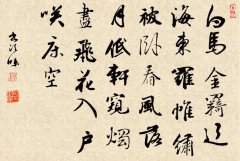 白馬金羈遼
海東羅帷繡
被卧春風落
月低軒窺燭
盡飛花入户
咲床空